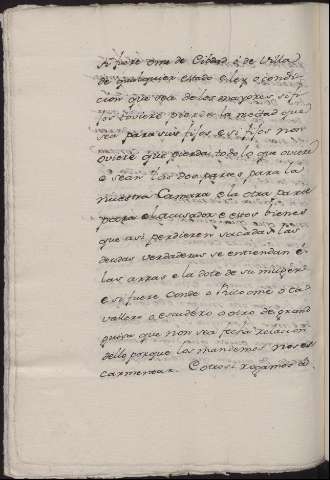 Si fuere ome de Cibdad, o de Villa
de qualquier estado e lex o condi-
cion que sea de los mayores si fi-
jos toviere pierda la meitad que
sea para sus fijos e si fijos non
oviere que pierda todo lo que oviere
e sean las dos partes para la
nuestra Camara e la otra parte
para el acusador e estos bienes
que asi perdieren sacadas las
deudas verdaderas se entiendan é
las arras e la dote de su muger
e si fuere Conde o Ricome o ca-
vallero o escudero o otro de grand
guisa que non sea fecha relacion
dello porque las mandemos nos es-
carmentar. E otrosi rogamos a